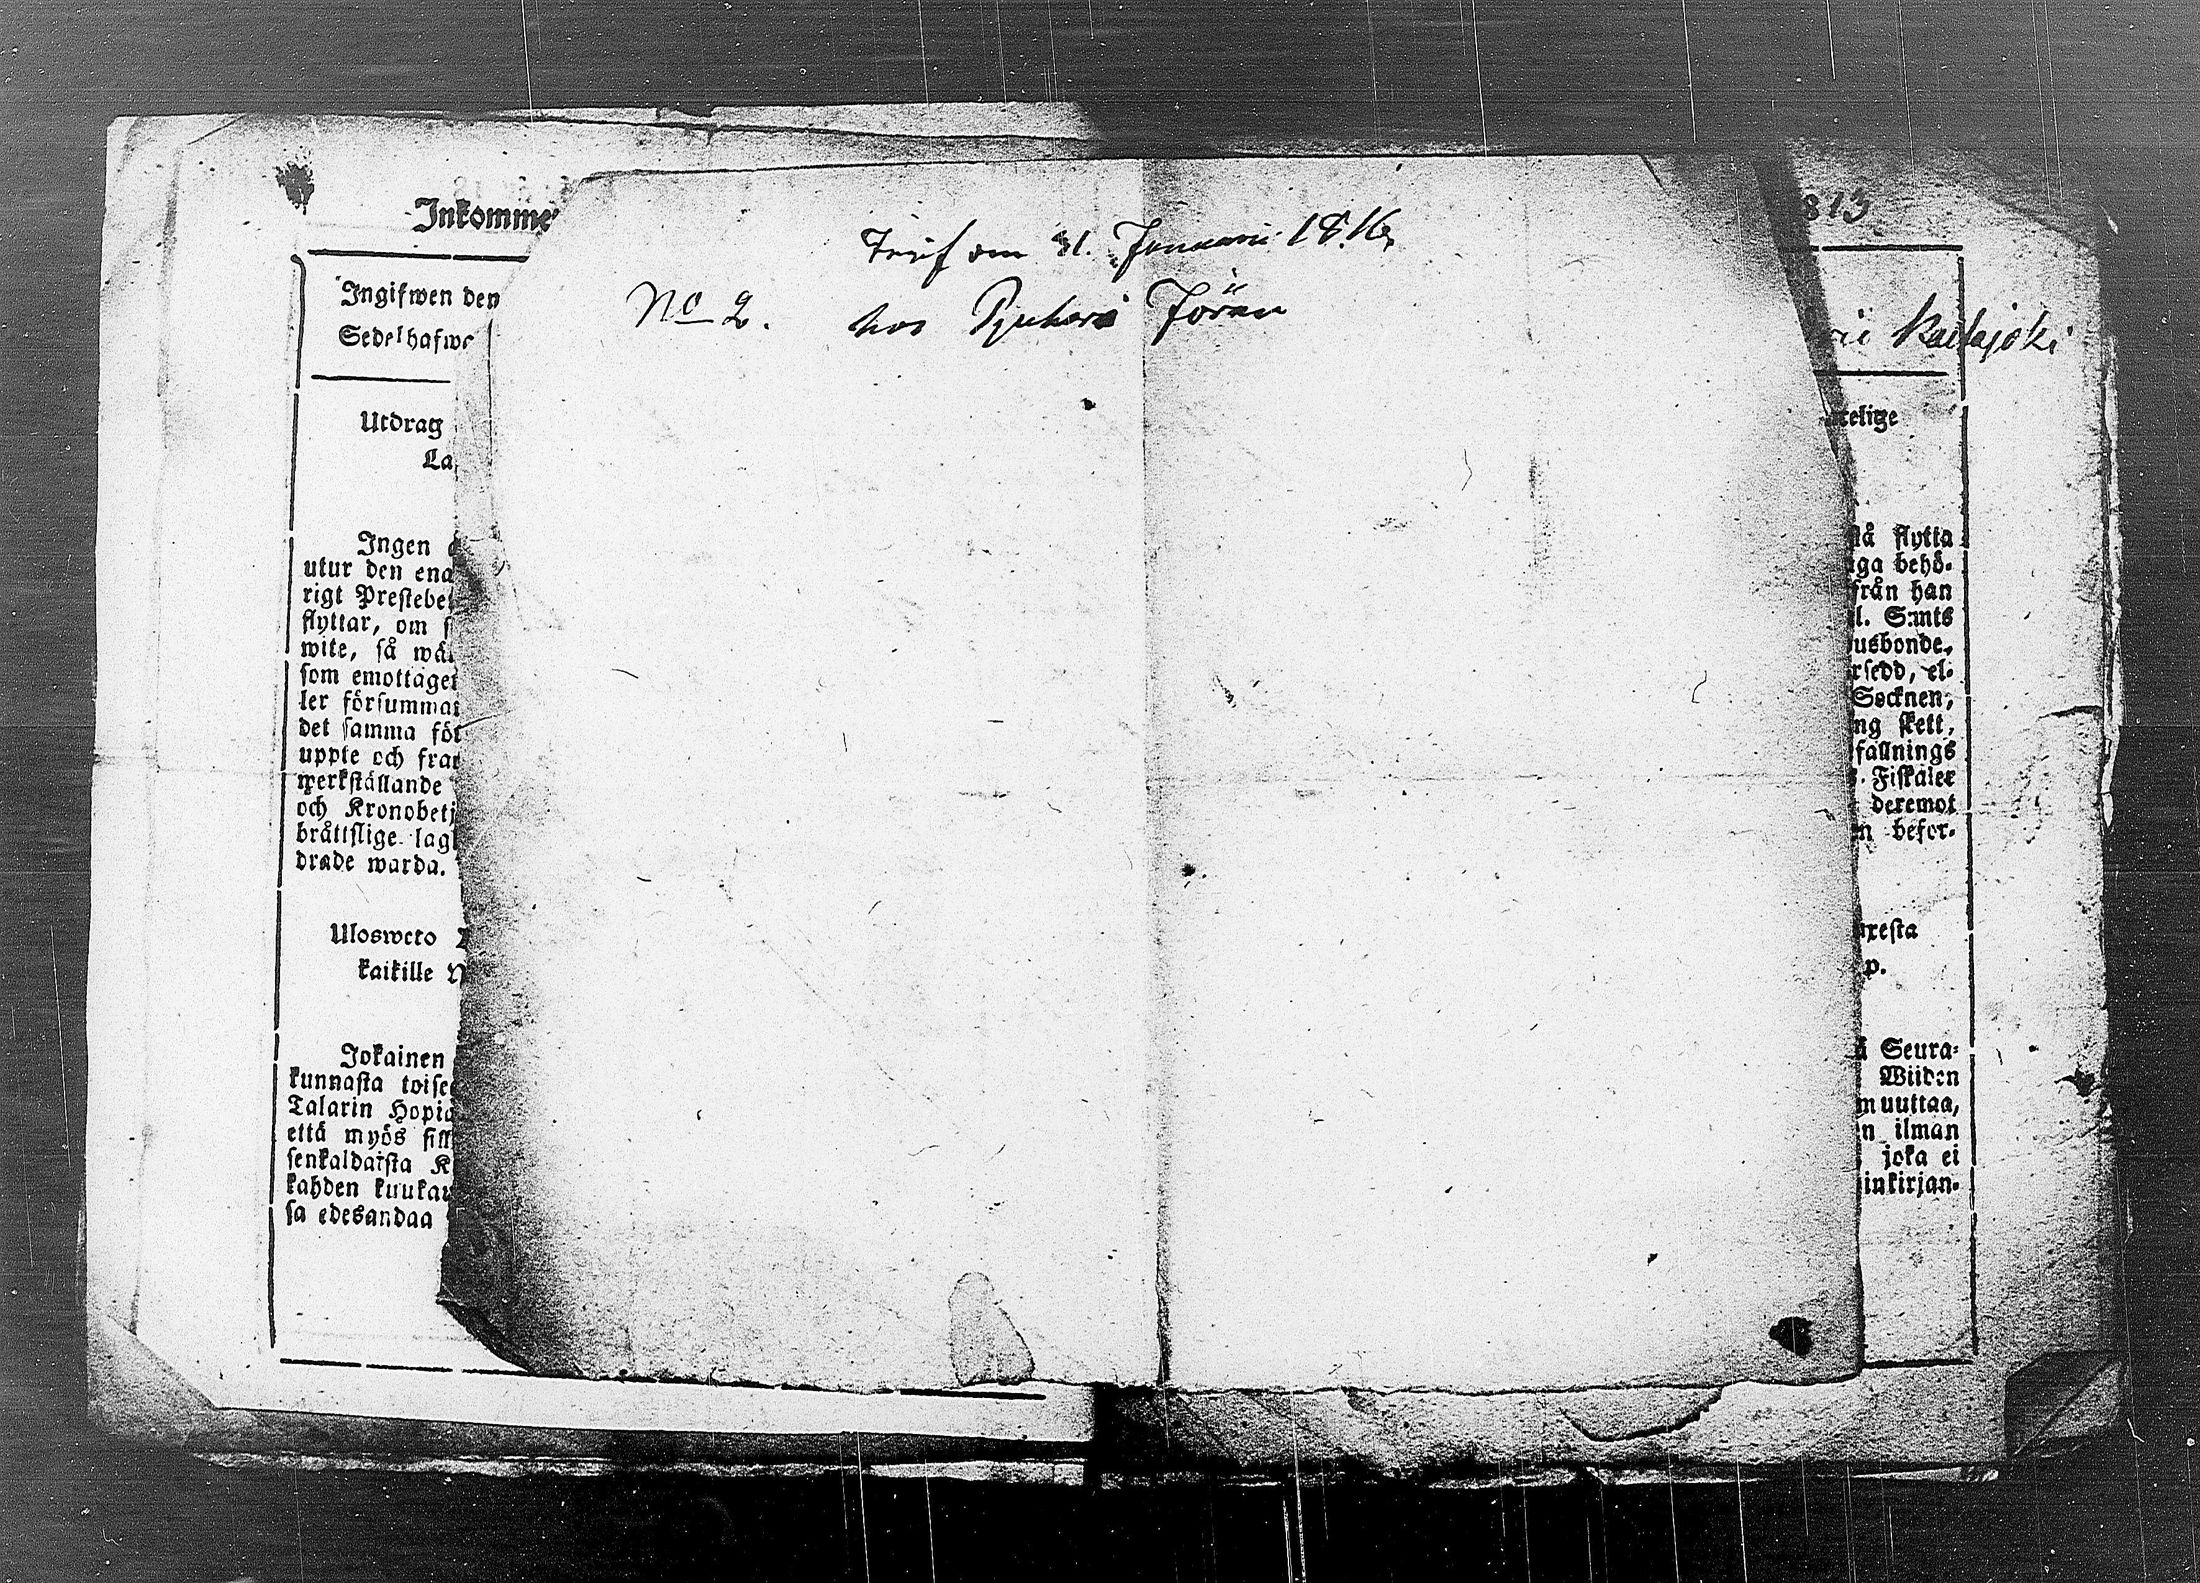 Inkomme
813
Ingifwen den
Sedelhafwe
Kaltajoki
Utdrag
La
telige
Ingen
utur den ena
rigt Prestebe
flyttar, om s
wite, så wä
som emottage
ler försumma
det samma för
uppte och fra
werkställande
och Kronobetj
bråttslige lag
drade warda.
må flytta
ga behö-
från han
l. S:mts
usbonde,
rsedd, el-
Socknen,
ng skett,
fällnings
s. Fiskaler
deremot
n befor-
Uloswcto
kaikille
xesta
p.
Jokainen
kunnasta toise
Talarin Hopia
että myös sill
senkaldaista K
kahden kuukau
sa edesandaa
ä Seura-
Wiiden
muuttaa,
n ilman
joka ei
inkirjan-
om 31. Januarii 1816
No 2. hos Pyuhari Jöran